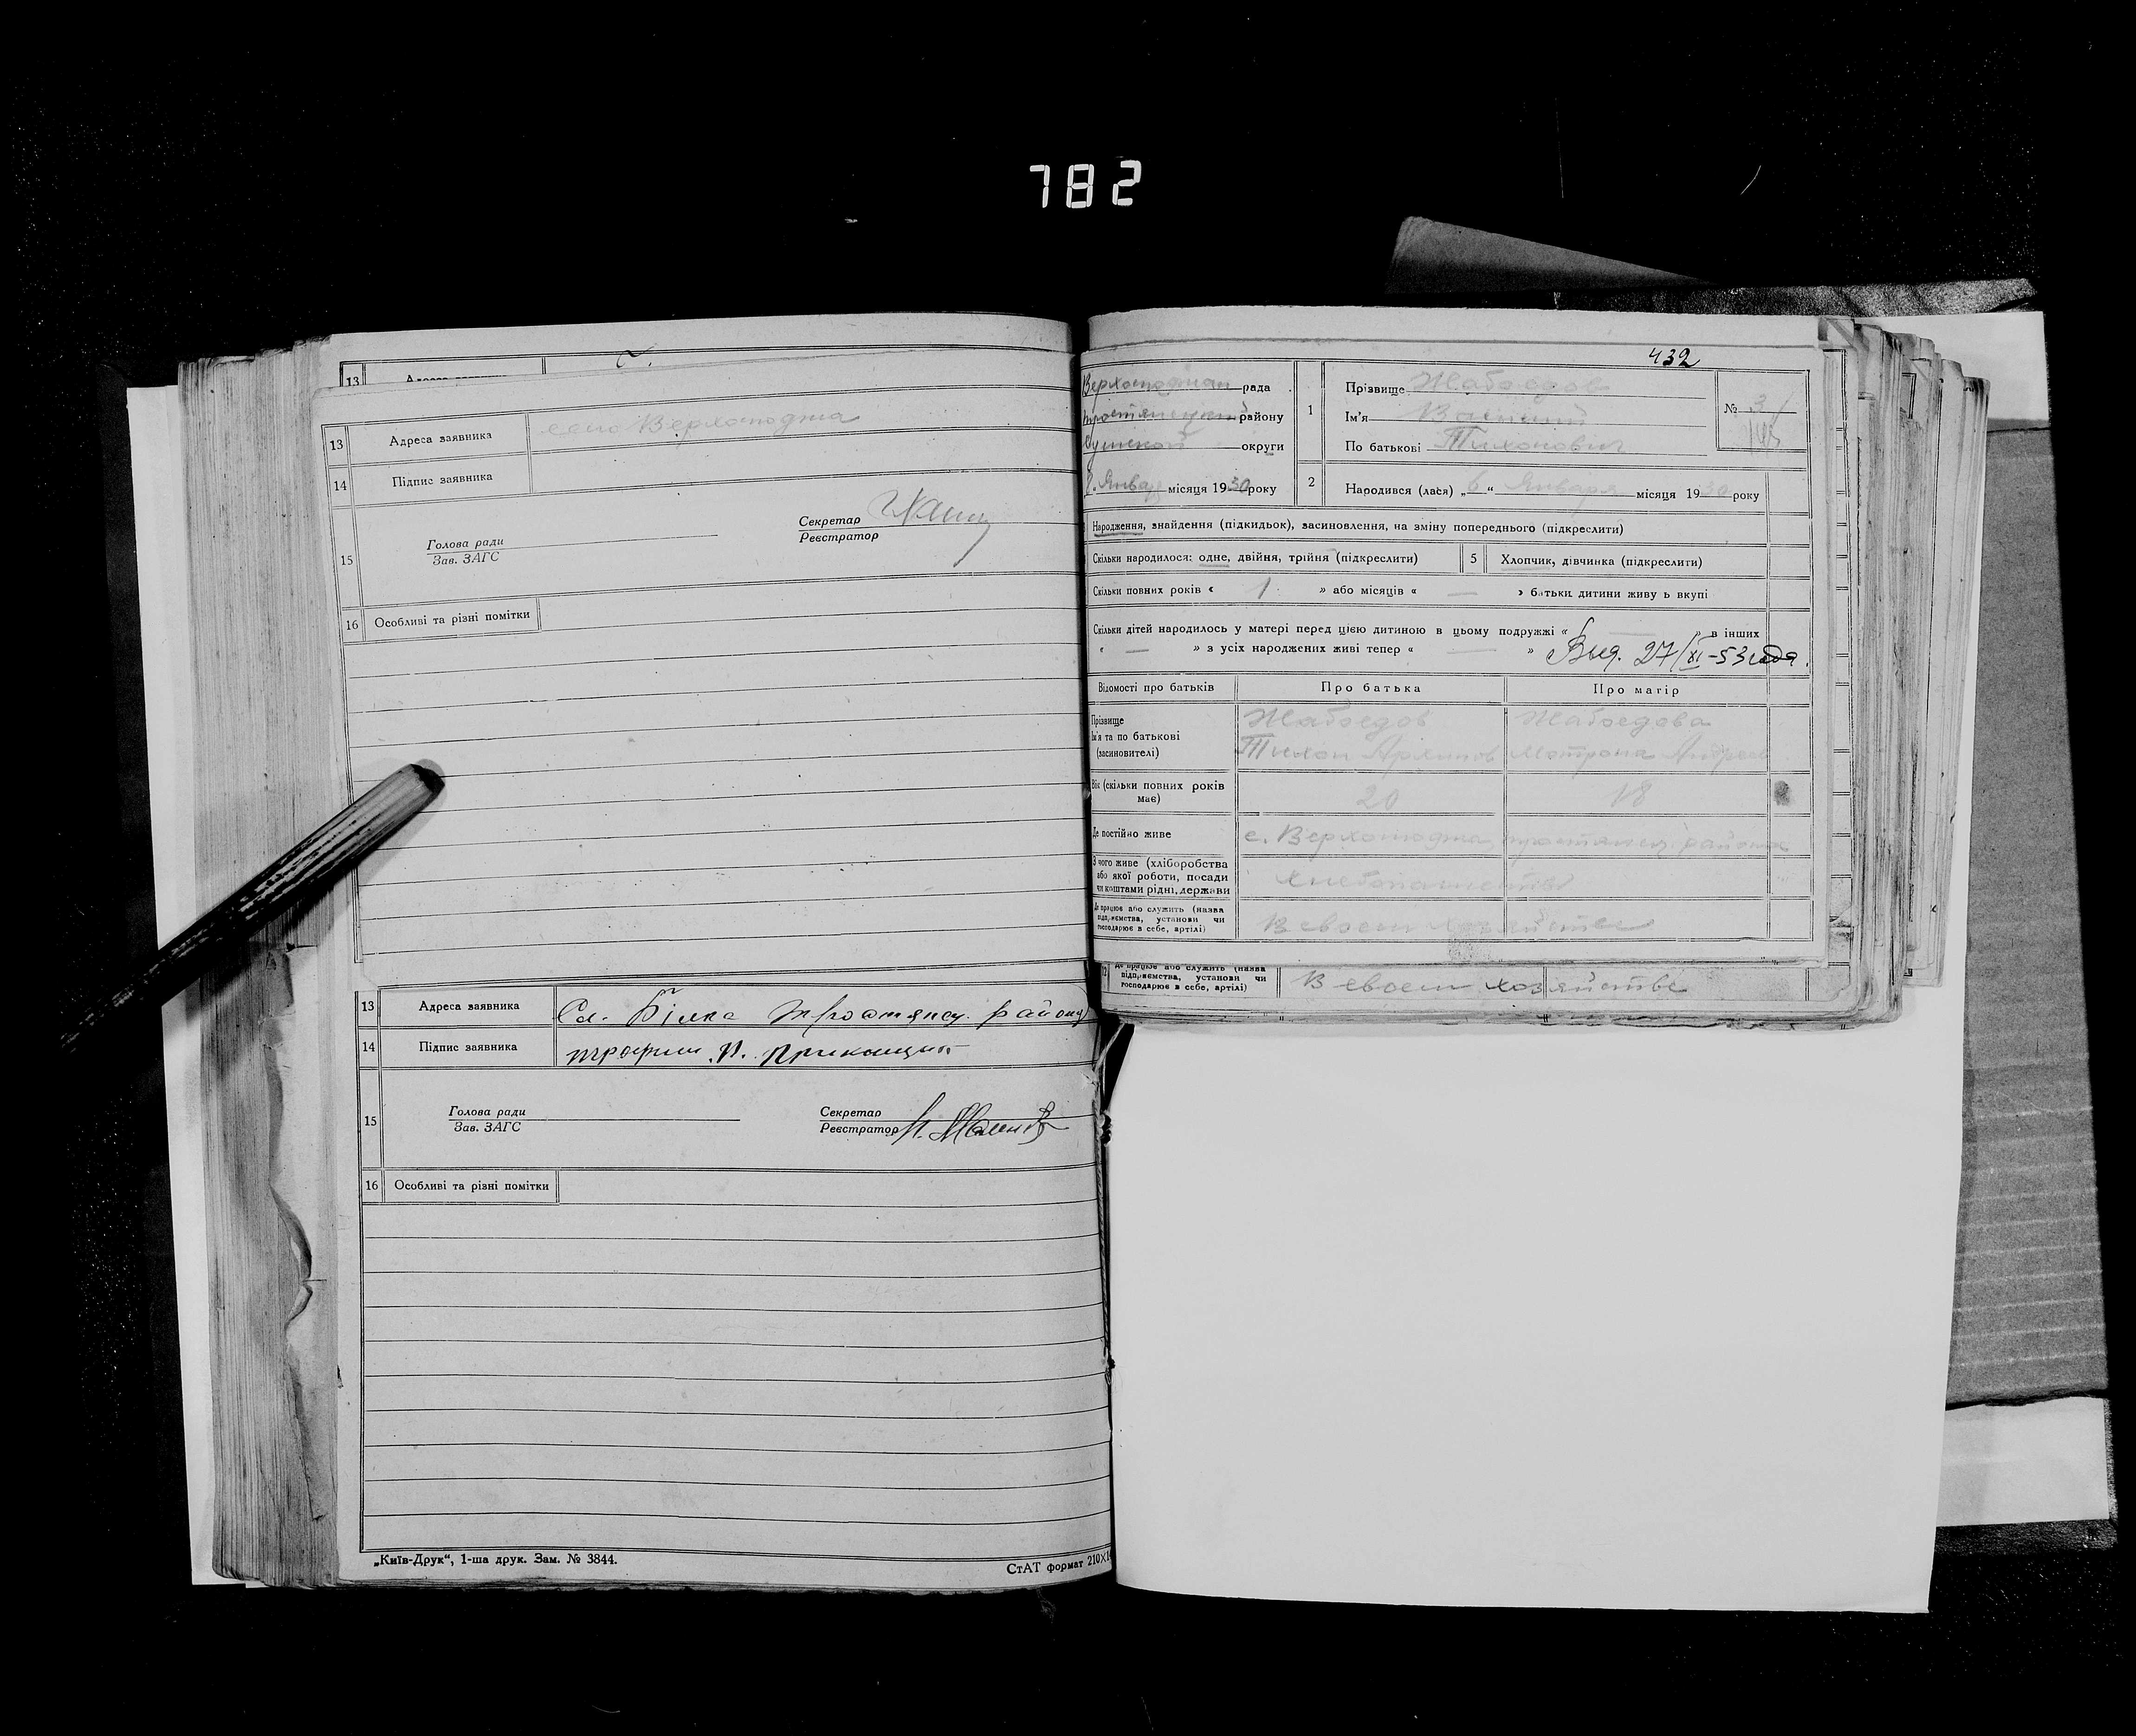 782
13 Адреса заявника село Верхолюджа
14 Підпис заявника
15 Голова ради
Зав. ЗАГС
Секретар
Реєстратор
16 Особливі та різні помітки
13 Адреса заявника Сл. Білка Тростянец. району
14 Підпис заявника
15 Голова ради
Зав. ЗАГС
Секретар
Реєстратор
16 Особливі та різні помітки
„Київ-Друк“, 1-ша друк. Зам. № 3844.
СтАТ формат 210×1
432
рада
району
округи
Январ місяця 1930 року
1 Прізвище Жабоедов
Ім'я Василий
По батькові Тихонович
№ 3/
2 Народився (лася) „6“ Января місяця 1930 року
Народження, знайдення (підкидьок), засиновлення, на зміну попереднього (підкреслити)
Скільки народилося: одне, двійня, трійня (підкреслити)
5 Хлопчик, дівчинка (підкреслити)
Скільки повних років « 1 » або місяців « — » батьки дитини живу ь вкупі
Скільки дітей народилось у матері перед цією дитиною в цьому подружжі « — » в інших
« — » з усіх народжених живі тепер « — »
Выд. 27/XI-53 года.
Відомості про батьків Про батька Про матір
Прізвище Жабоедов Жабоедова
Ім'я та по батькові
(засновителі) Тихон Архипов Мотрона Андреев
Вік (скільки повних років
має) 20 18
Де постійно живе с. Верхолюджа тростянец. района
З чого живе (хліборобства
або якої роботи, посади
чи коштами рідні, держави хлебопашество
Де працює або служить (назва
підприємства, установи чи
господарює в себе, артілі) В своем хозяйстве
Де працює або служить (назва
підприємства, установи чи
господарює в себе, артілі) В своем хозяйстве